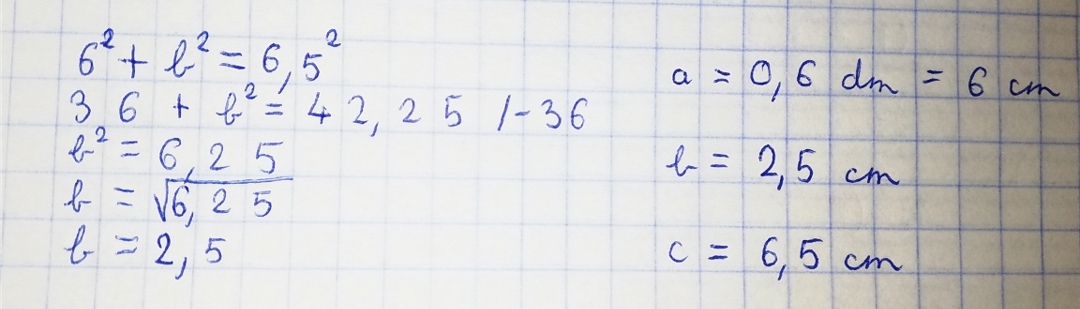 6² + b² = 6,5²
36 + b² = 42,25 /-36
b² = 6,25
b = √6,25
b = 2,5
a = 0,6 dm = 6 cm
b = 2,5 cm
c = 6,5 cm